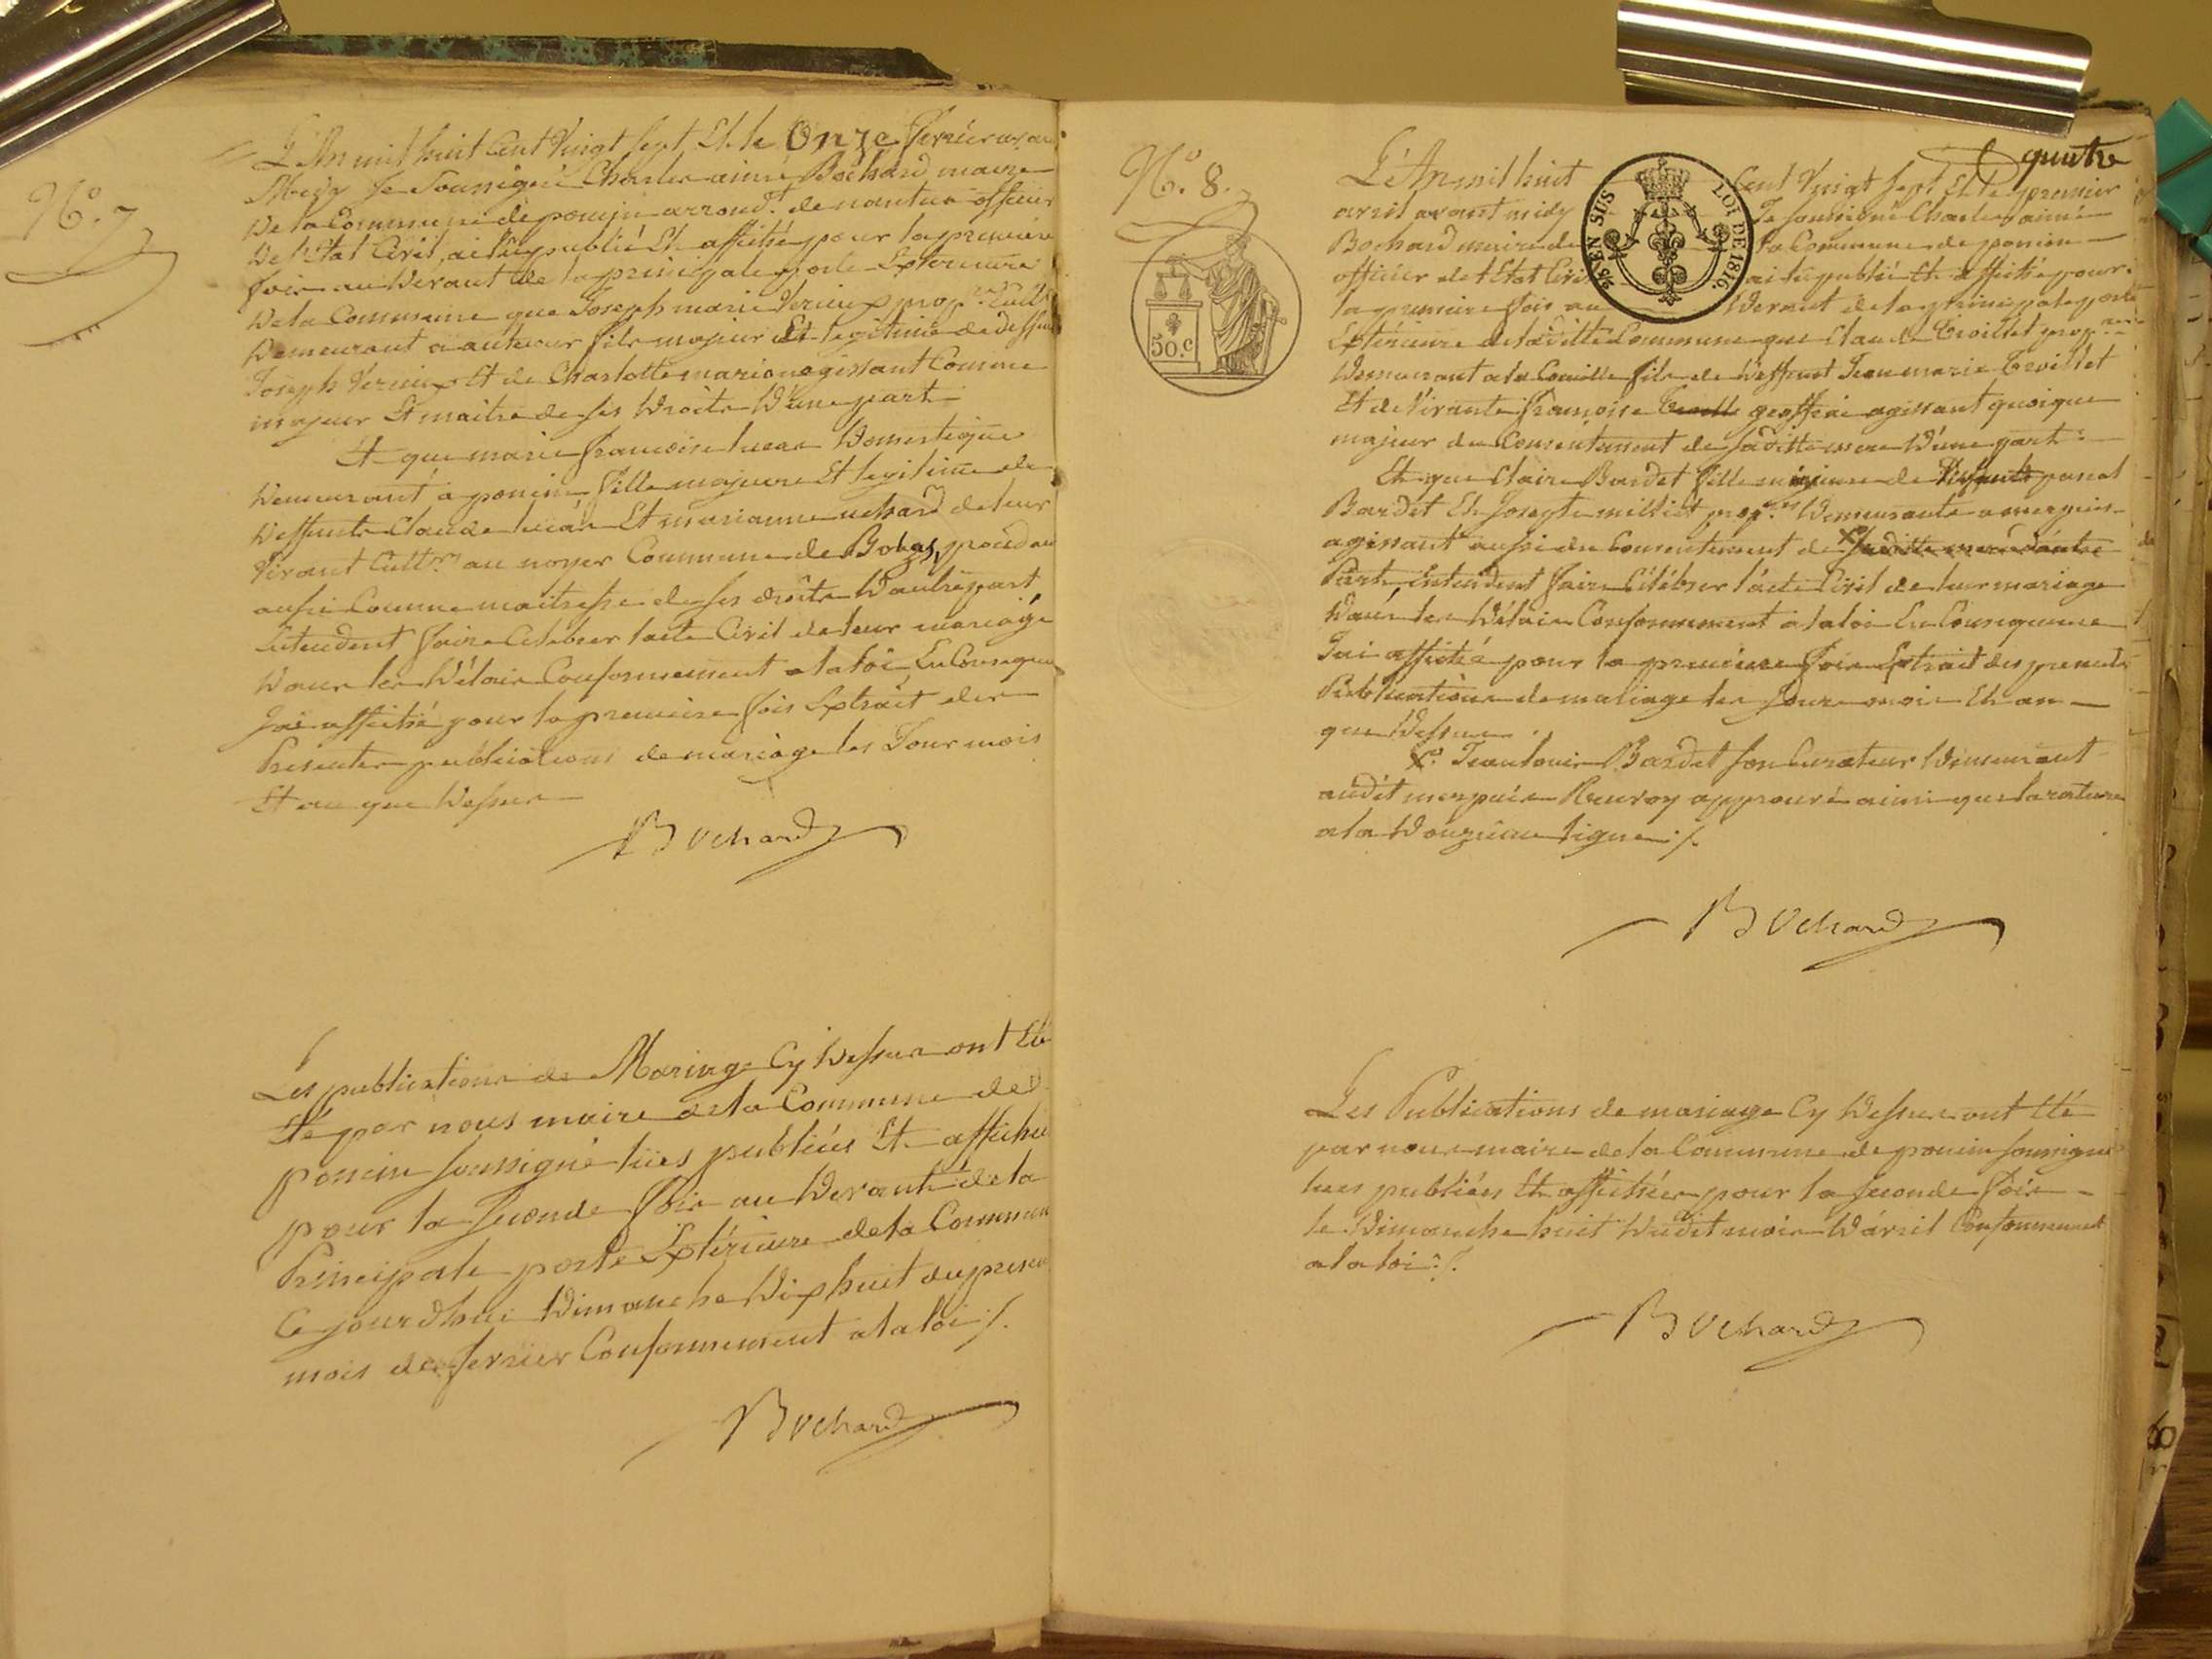 N.° 7
L'An mil huit Cent Vingt Sept Et le Onze fevrier avan
Midy Je Soussigné Charles aimé Bochard maire
De la Commune de poncin arrond.t de nantua officier
De l'Etat Civil, ai lu publié Et affiché pour la premiere
fois au Devant de la principale porte Exterieure
De la Commune que Joseph marie Verieux prop.re Cult.r
Demeurant a fils majeur Et legitime de deffunt
Joseph Verieux Et de Charlotte marion agissant Comme
majeur Et maitre de ses Droits D'une part
Et que marie francoise lucas Domestique
Demeurant à poncin, fille majeure Et legitime de
Deffunt Claude lucas Et marianne uchard de leur
Vivant Cult.rs au noyer Commune de Bohas,
aussi Comme maitresse de ses droits D'autre part
Entendent faire Celebrer l'acte Civil de leur mariage
Dans les Délais Conformement a la loi En Conseque
J'ai affiché pour la premiere fois Extrait des
Presentes publications de mariage les Jour mois
Et an que Dessus
Bochard
Les publications de Mariage Cy Dessus ont Et
été par nous maire de la Commune de
poncin soussigné lües publiées Et affichée
pour la seconde fois au Devant de la
Principale porte Extérieure de la Commune
Ce jourd'hui Dimanche Dix huit du presen
mois de fevrier Conformement a la loi ./.
Bochard
quatre
N.° 8.
50.c
EN SUS LOI DE 1816.
L'An mil huit Cent Vingt Sept Et le premier
avril avant midy Je soussigné Charles aimé
Bochard maire de la Commune de poncin
officier de l'Etat Civil ai lu publié Et affiché pour
la premiere fois au Devant de la principale porte
Extérieure de la ditte Commune que Claude Troillet prop.re
Demeurant a la Coutille fils de Deffunt Jean marie Troillet
Et de Vivante françoise geoffrai agissant quoique
majeur du Consentement de sa ditte mere D'une part
Et que Claire Bardet fille mineure de
Bardet Et Josepte milliat prop.res Demeurante a merpuis
agissant aussi du Consentement de X sa ditte mere d'autre
Part Entendent faire Célébrer l'acte Civil de leur mariage
Dans les Délais Conformement a la loi En Consequence
J'ai affiché pour la premiere fois Extrait des presents
Publications de mariage les jour mois Et an
que Dessus.
X.° Jean louis Bardet son Curateur Demeurant
audit merpuis Renvoy approuvé ainsi que la rature
a la Douzieme ligne ./.
Bochard
Les Publications de mariage Cy Dessus ont Eté
par nous maire de la Commune de poncin soussigné
lues publiées Et affichées pour la seconde fois
le Dimanche huit Dudit mois D'avril Conformement
a la loi ./.
Bochard